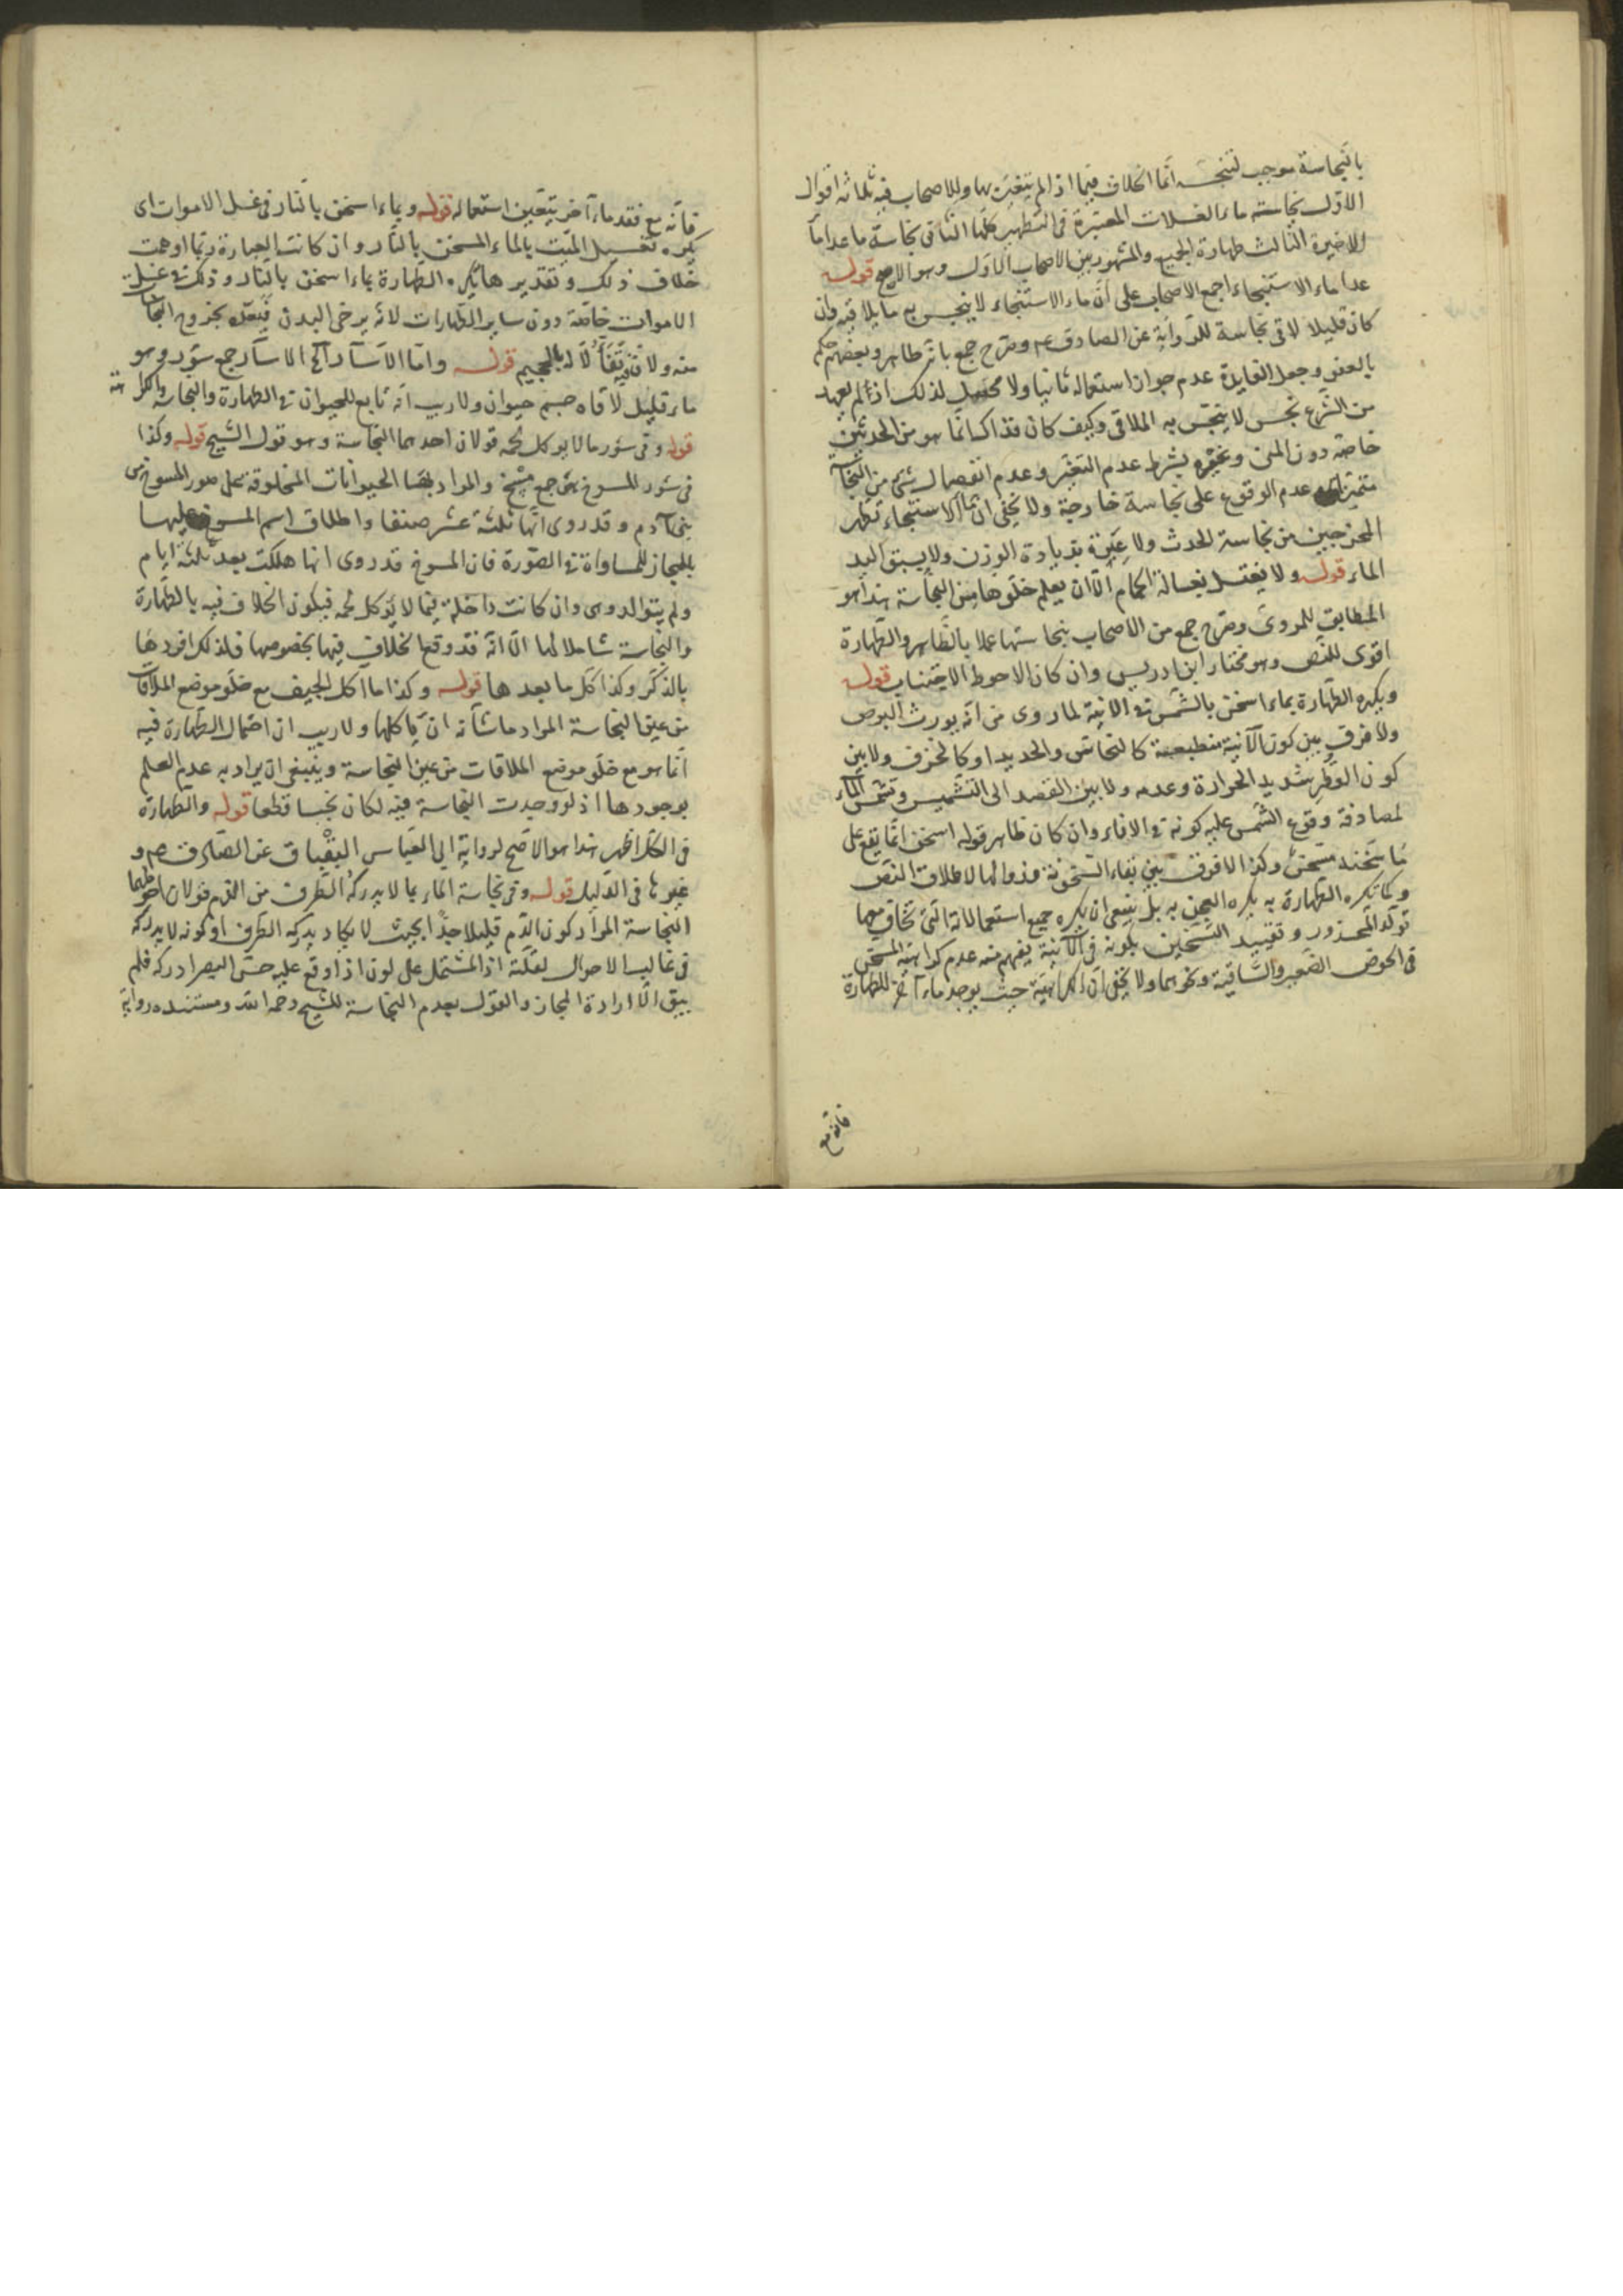 بالنجاسة موجب لتنجسه انما الخلاف فيما اذا لم يتغير بها وللاصحاب فيه ثلاثة اقوال
الاول نجاسة ماء الغسلات المعتبرة فى التطهير كلها الثانى نجاسة ما عدا ماء
الاخيرة الثالث طهارة الجميع والمشهور بين الاصحاب الاول وهو الاصح قوله
عدا ماء الاستنجاء اجمع الاصحاب على ان ماء الاستنجاء لا ينجس به ما يلاقيه وان
كان قليلا لاقى نجاسة للرواية عن الصادق ع م وصرح جمع بانه طاهر وبعضهم حكم
بالعفو وجعل الفايدة عدم جواز استعماله ثانيا ولا محصل لذلك اذ لم يعهد
من الشرع نجس لا ينجس به الملاقى وكيف كان فذاك انما هو من الحدثين
خاصة دون المنى وغيره بشرط عدم التغير وعدم انفصال شئ من النجاسة
متميزا عدم الوقوع على نجاسة خارجة ولا يخفى ان ماء الاستنجاء تطهر
المخرجين من نجاسة الحدث ولا عبرة بزيادة الوزن ولا بسبق اليد
الماء قوله ولا يغتسل بغسالة الحمام الا ان يعلم خلوها من النجاسة هذا هو
المطابق للمروى وصرح جمع من الاصحاب بنجاستها عملا بالظاهر والطهارة
اقوى للنص وهو مختار ابن ادريس وان كان الاحوط الاجتناب قوله
ويكره الطهارة بماء اسخن بالشمس فى الانية لما روى من انه يورث البرص
ولا فرق بين كون الآنية منطبعة كالنحاس والحديد او كالخزف ولا بين
كون القطر شديد الحرارة وعدمه ولا بين القصد الى التشميس وتشمس الماء
لمصادفة وقوع الشمس عليه كونه فى الاناء وان كان ظاهر قوله اسخن انما يقع على
ما سخنه مسخن وكذا لا فرق بين بقاء السخونة وزوالها لاطلاق النص
وكما تكره الطهارة به يكره العجين به بل ينبغى ان يكره جميع استعمالاته التى تخاف معها
تولد المحذور وتقييد التسخين بكونه فى الآنية يفهم منه عدم كراهته المسخن
فى الحوض الصغير والساقية ونحوهما ولا يخفى ان الكراهية حيث يوجد ماء آخر للطهارة
فانه مع
فانه مع فقد ماء آخر يتعين استعماله قوله وبماء اسخن بالنار فى غسل الاموات اى
يكره تغسيل الميت بالماء المسخن بالنار وان كانت العبارة ربما اوهمت
خلاف ذلك وتقديرها يكره الطهارة بماء اسخن بالنار وذلك فى غسل
الاموات خاصة دون ساير الطهارات لانه يرخى البدن فيتعده بخروج النجاسات
منه ولانه تفأل له بالحميم قوله واما الآسآر آلخ الآسآر جمع سؤر وهو
ماء قليل لاقاه جسم حيوان ولا ريب انه تابع للحيوان فى الطهارة والنجاسة والكراهة
قوله وفى سؤر ما لا يوكل لحمه قولان احدهما النجاسة وهو قول الشيخ قوله وكذا
فى سؤر المسوخ هى جمع مسخ والمراد بها الحيوانات المخلوقة على صور المسوخ من
بنى آدم وقد روى انها ثلثة عشر صنفا واطلاق اسم المسوخ عليها
بالمجاز للمساواة فى الصورة فان المسوخ قد روى انها هلكت بعد ثلثة ايام
ولم يتوالدوى وان كانت داخلة فيما لا يوكل لحمه فيكون الخلاف فيه بالطهارة
والنجاسة شاملا لها الا انه قد وقع الخلاف فيها بخصوصها فلذلك افردها
بالذكر وكذا كل ما بعدها قوله وكذا ما اكل الجيف مع خلو موضع الملاقات
من عين النجاسة المراد ما شأنه ان ياكلها ولا ريب ان احتمال الطهارة فيه
انما هو مع خلو موضع الملاقات من عين النجاسة وينبغى ان يراد به عدم العلم
بوجودها اذ لو وجدت النجاسة فيه لكان نجسا قطعا قوله والطهارة
فى الكل اظهر هذا هو الاصح لرواية ابى العباس البقباق عن الصادق ع م و
غيرها فى الدليل قوله وفى نجاسة الماء بما لا يدركه الطرف من الدم قولان احوطهما
النجاسة المراد كون الدم قليلا جدا بحيث لا يكاد يدركه الطرف او كونه لا يدركه
فى غالب الاحوال لقلته اذ المشتمل على لون اذا وقع عليه حس البصر ادركه فلم
يبق الا ارادة المجاز والقول بعدم النجاسة للشيخ رحمه الله ومستنده رواية